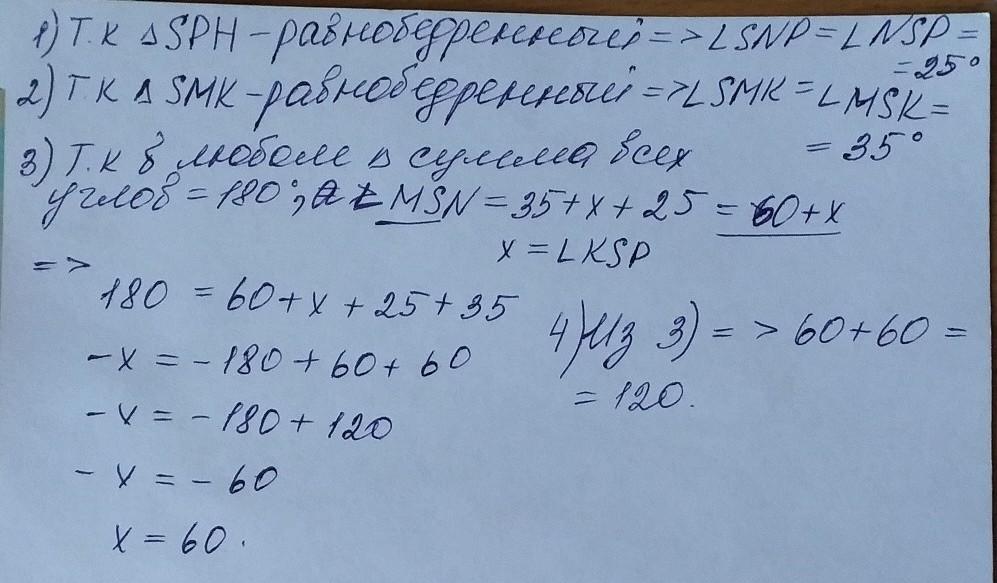 1) Т.к ΔSPH - равнобедренный => ∠SNP = ∠NSP =
= 25°
2) Т.к Δ SMK - равнобедренный => ∠SMK = ∠MSK =
= 35°
3) Т.к в любом Δ сумма всех
углов = 180°; а ∠MSN = 35 + x + 25 = 60 + x
x = ∠KSP
=>
180 = 60 + x + 25 + 35
-x = -180 + 60 + 60
-x = -180 + 120
-x = -60
x = 60.
4) Из 3) => 60 + 60 =
= 120.